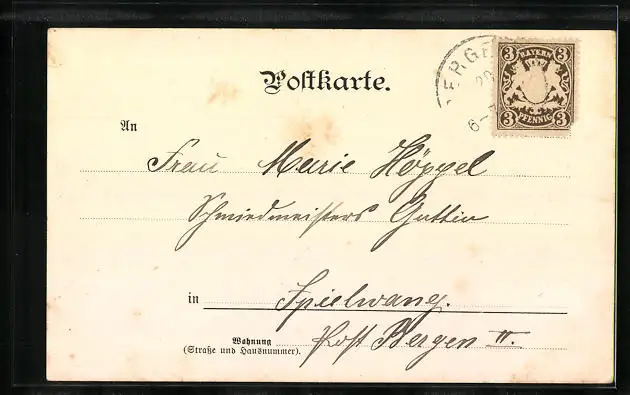 BERGE
20
6-
3 BAYERN 3
3 PFENNIG 3
Postkarte.
An
Frau Marie Höppel
Schmiedmeisters Gattin
in Spielwang.
Wohnung
(Straße und Hausnummer).
Post Bergen II.